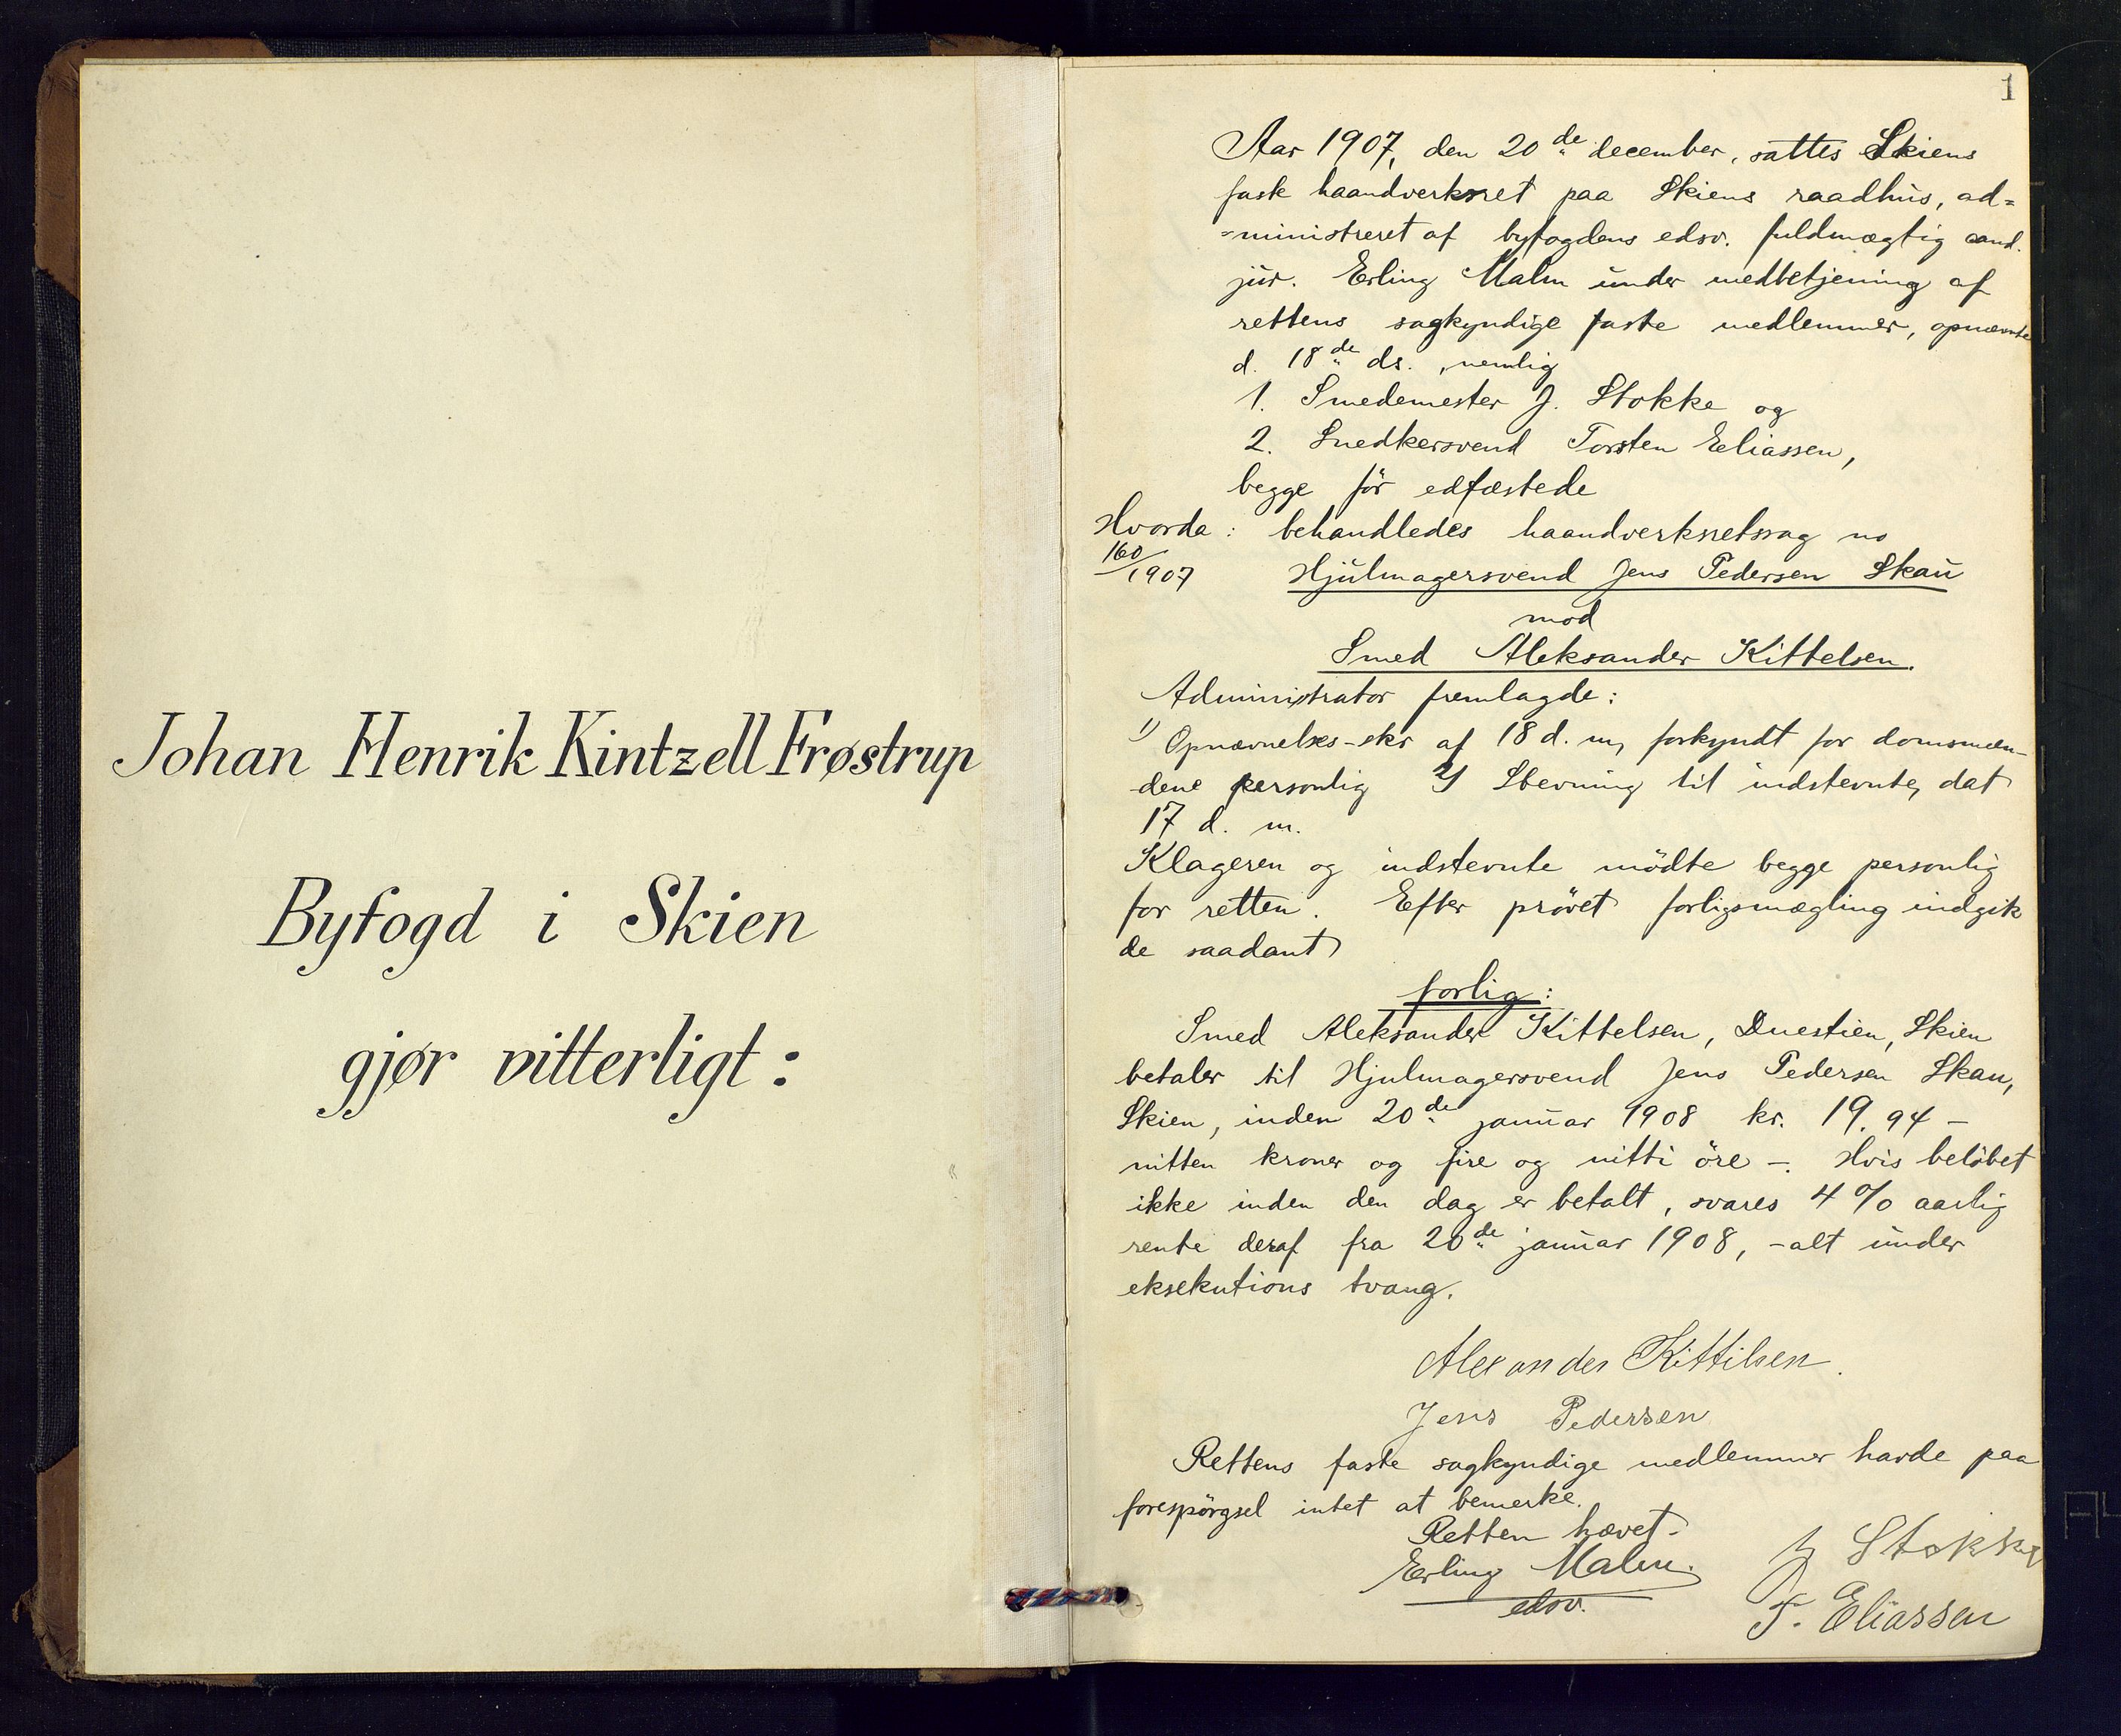 Johan Henrik Kintzell Frøstrup
Byfogd i Skien
gjør vitterligt:
1
Aar 1907, den 20de december, sattes Skiens
fask haandverksret paa Skiens raadhus, ad=
=ministreret af byfogdens edsv. fuldmægtig cand.
jur. Erling Malm under medbetjening af
rettens sagkyndige faste medlemmer, opnævnte
d. 18de ds., nemlig
1. Smedemester J. Stokke og
2. Snedkersvend Torsten Eeliassen,
begge før edfæstede
Hvorda: behandledes haandverksretssag no
160/1907 Hjulmagersvend Jens Pedersen Skau
mod
Smed Aleksander Kittelsen.
Administrator fremlagde:
1) Opnævnelses-skr af 18 d. m, forkyndt for domsmæn-
dene personlig 2) Stevning til indstevnte, dat
17 d. m.
Klageren og indstevnte mödte begge personlig
for retten. Efter prövet forligsmægling indgik
de saadant
forlig:
Smed Aleksander Kittelsen, Duestien, Skien
betaler til Hjulmagersvend Jens Pedersen Skau,
Skien, inden 20de januar 1908 kr. 19.94 –
nitten kroner og fire og nitti öre –. Hvis belöbet
ikke inden den dag er betalt, svares 4 % aarlig
rente deraf fra 20de januar 1908, – alt under
eksekutions tvang.
Alexander Kittilsen.
Jens Pedersen
Rettens faste sagkyndige medlemmer havde paa
forespörgsel intet at bemerke.
Retten hævet.
Erling Malm.
edsv.
J Stokke
T. Eliassen